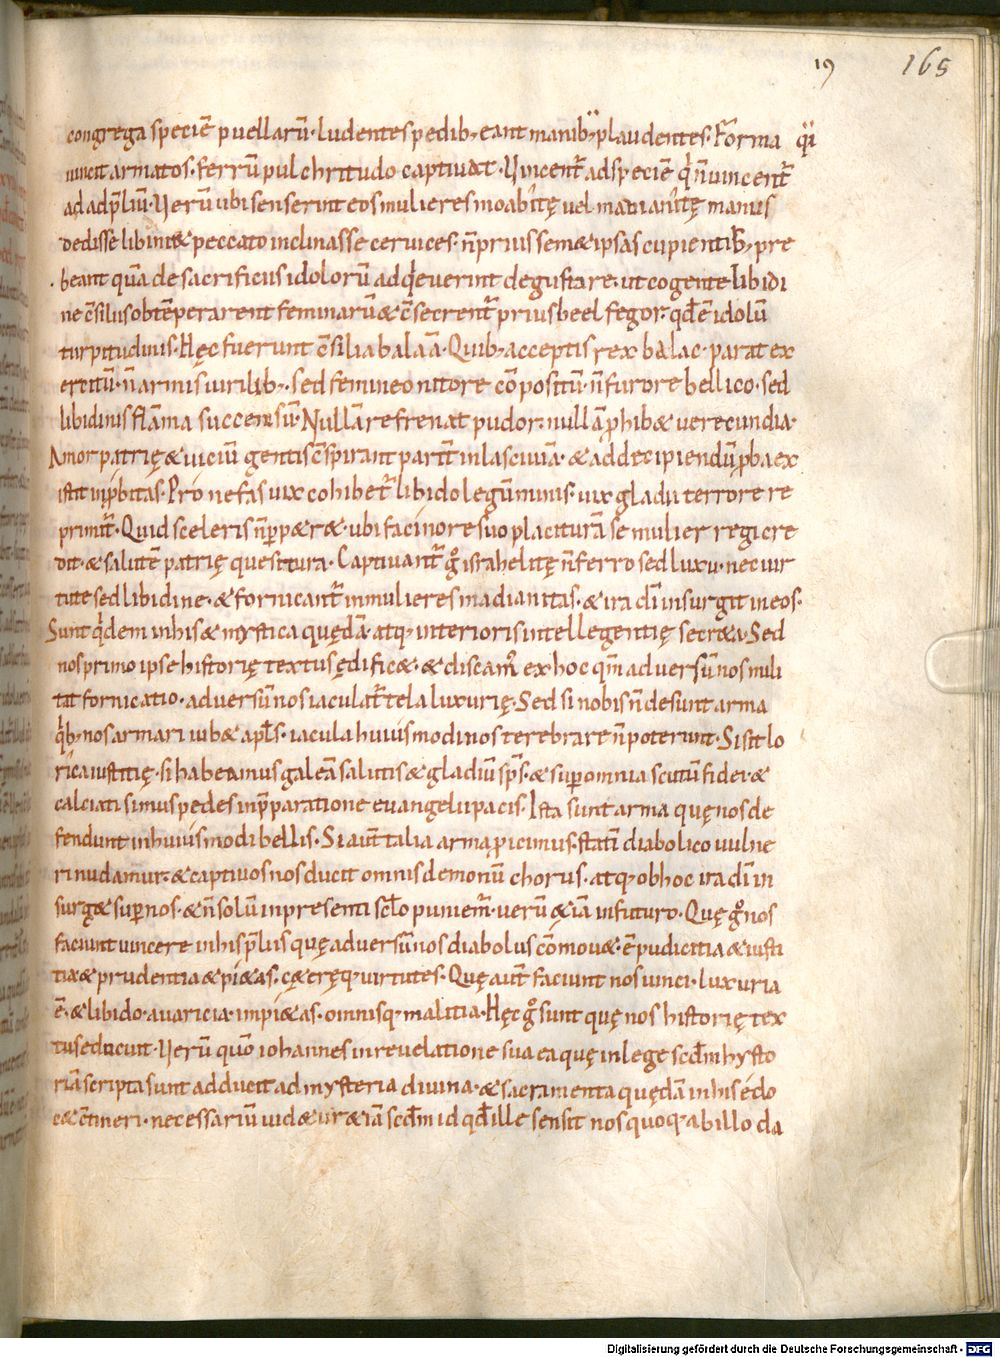 19 165
congrega speciē puellarū· ludentes pedib; eant manib; plaudentes· Forma qͥ
uincit armatos· ferrū pulchritudo captiuat· Vincent̄ ad speciē qͥ n̄ uincent̄
ad ad p̄liū· Verū ubi senserint eos mulieres moabitę uel madianitę manus
dedisse libini & peccato inclinasse ceruices· n̄ prius sem& ipsas cupientib; pre
beant quā de sacrificiis idolorū adqͥeuerint degustare· ut cogente libidi
ne c̄siliis obtēperarent feminarū & c̄secrent̄ prius beelfegor· qđ ē idolū
turpitudinis· Hęc fuerunt c̄silia balaā· Quib; acceptis rex balac· parat ex
ercitū· n̄ armis uirilib;· sed femineo nitore cōpositū· n̄ furore bellico· sed
libidinis flāma succensū· Nullā refrenat pudor· nullā ꝓhib& uerecundia·
Amor patrię & uiciū gentis c̄spirant parit̄ in lasciuiā· & ad decipiendū ꝓba ex
istit inꝓbitas· Pro nefas uix cohibet̄ libido legū minis· uix gladii terrore re
primit̄· Quid sceleris n̄ perp&r&· ubi facinore suo placiturā se mulier regi cre
dit· & salutē patrię quesitura· Captiuant̄ gͦ israhelitę n̄ ferro sed luxu· nec uir
tute sed libidine· & fornicant̄ in mulieres madianitas· & ira dī insurgit in eos·
Sunt qͥdem in his & mystica quędā· atq; interioris intellegentię secr&a· Sed
nos primo ipse historię textus ędific&· & discam᷒ ex hoc qm̄ aduersū nos mili
tat fornicatio· aduersū nos iaculat̄ tela luxurię· Sed si nobis n̄ desunt arma
qͥb; nos armari iub& apl̄s· iacula huiusmodi nos terebrare n̄ poterunt· Si sit lo
rica iustitię· si habeamus galeā salutis & gladiū sp̄s· & super omnia scutū fidei· &
calciati simus pedes in p̄paratione euangelii pacis· Ista sunt arma quę nos de
fendunt in huiusmodi bellis· Si aut̄ talia arma ꝓicimus· statī diabolico uulne
ri nudamur· & captiuos nos ducit omnis demonū chorus· atq; ob hoc ira dī in
surg& super nos· & n̄ solū in presenti sc̄lo puniemur· uerū &iā in futuro· Quę gͦ nos
faciunt uincere in his p̄liis quę aduersū nos diabolus cōmou&· ē pudicitia & iusti
tia & prudentia & pi&as· c&eręq; uirtutes· Quę aut̄ faciunt nos uinci· luxuria
ē· & libido· auaricia· impi&as· omnisq; malitia· Hęc gͦ sunt quę nos historię tex
tus educunt· Verū quō iohannes in reuelatione sua ea quę in lege scd̄m hysto
riā scripta sunt adducit ad mysteria diuina· & sacramenta quędā in his edo
c& c̄tineri· necessariū uid&ur &iā scd̄m id qđ ille sensit nos quoq; ab illo da